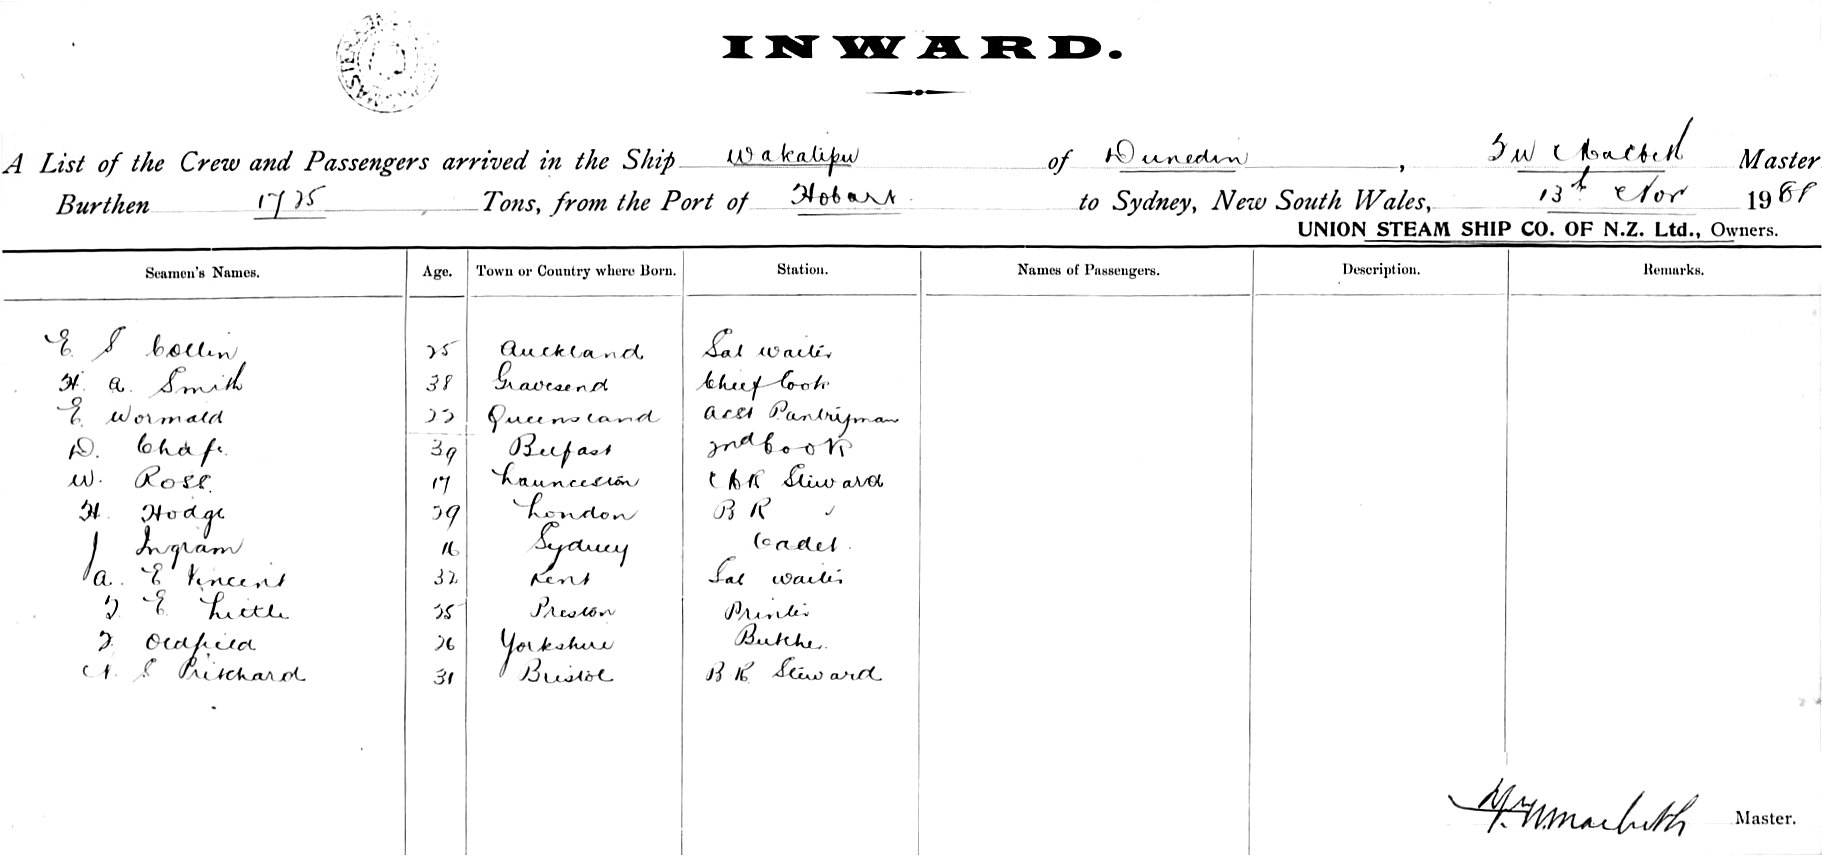 INWARD.
A List of the Crew and Passengers arrived in the Ship Wakatipu of Dunedin, F W Macbeth Master
Burthen 1725 Tons, from the Port of Hobart to Sydney, New South Wales, 13th Nov 19
UNION STEAM SHIP CO. OF N.Z. Ltd., Owners.
Seamen's Names. Age. Town or Country where Born. Station. Names of Passengers. Description. Remarks.
E. S Collin 25 Auckland Sal waiter
H. A. Smith 38 Gravesend Chief Cook
E. Wormald 22 Queensland Asst Pantryman
D. Chafe. 39 Belfast 2nd Cook
W. Ross. 17 Launceston Steward
H. Hodge 29 London B R "
J Ingram 16 Sydney Cadet.
A. E Vincent 32 Kent Sal waiter
F. E. Little 25 Preston Printer
F. Oldfield 26 Yorkshire Butcher.
N. S Pritchard 31 Bristol B R Steward
F. W. Macbeth Master.